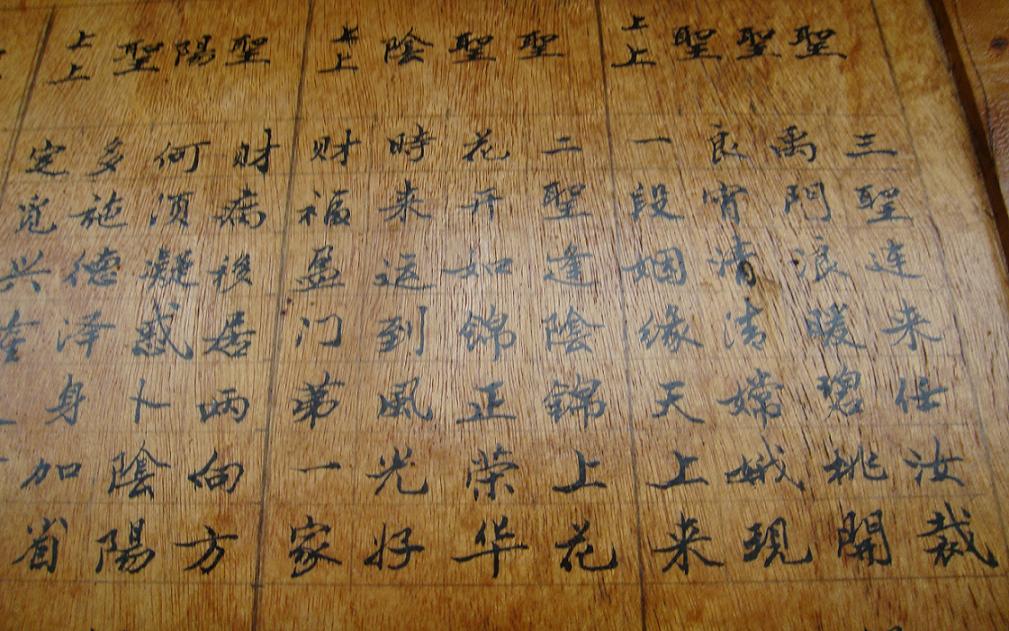 上上 聖聖聖
三聖連来任汝裁
禹門浪暖碧桃開
良宵清洁嫦娥現
一段姻缘天上来
上上 陰聖聖
二聖逢陰錦上花
花开如錦正荣华
時来运到風光好
财福盈门第一家
上上 聖陽聖
财病移居兩向方
何須凝惑卜陰陽
多施德泽身加省
定覓兴